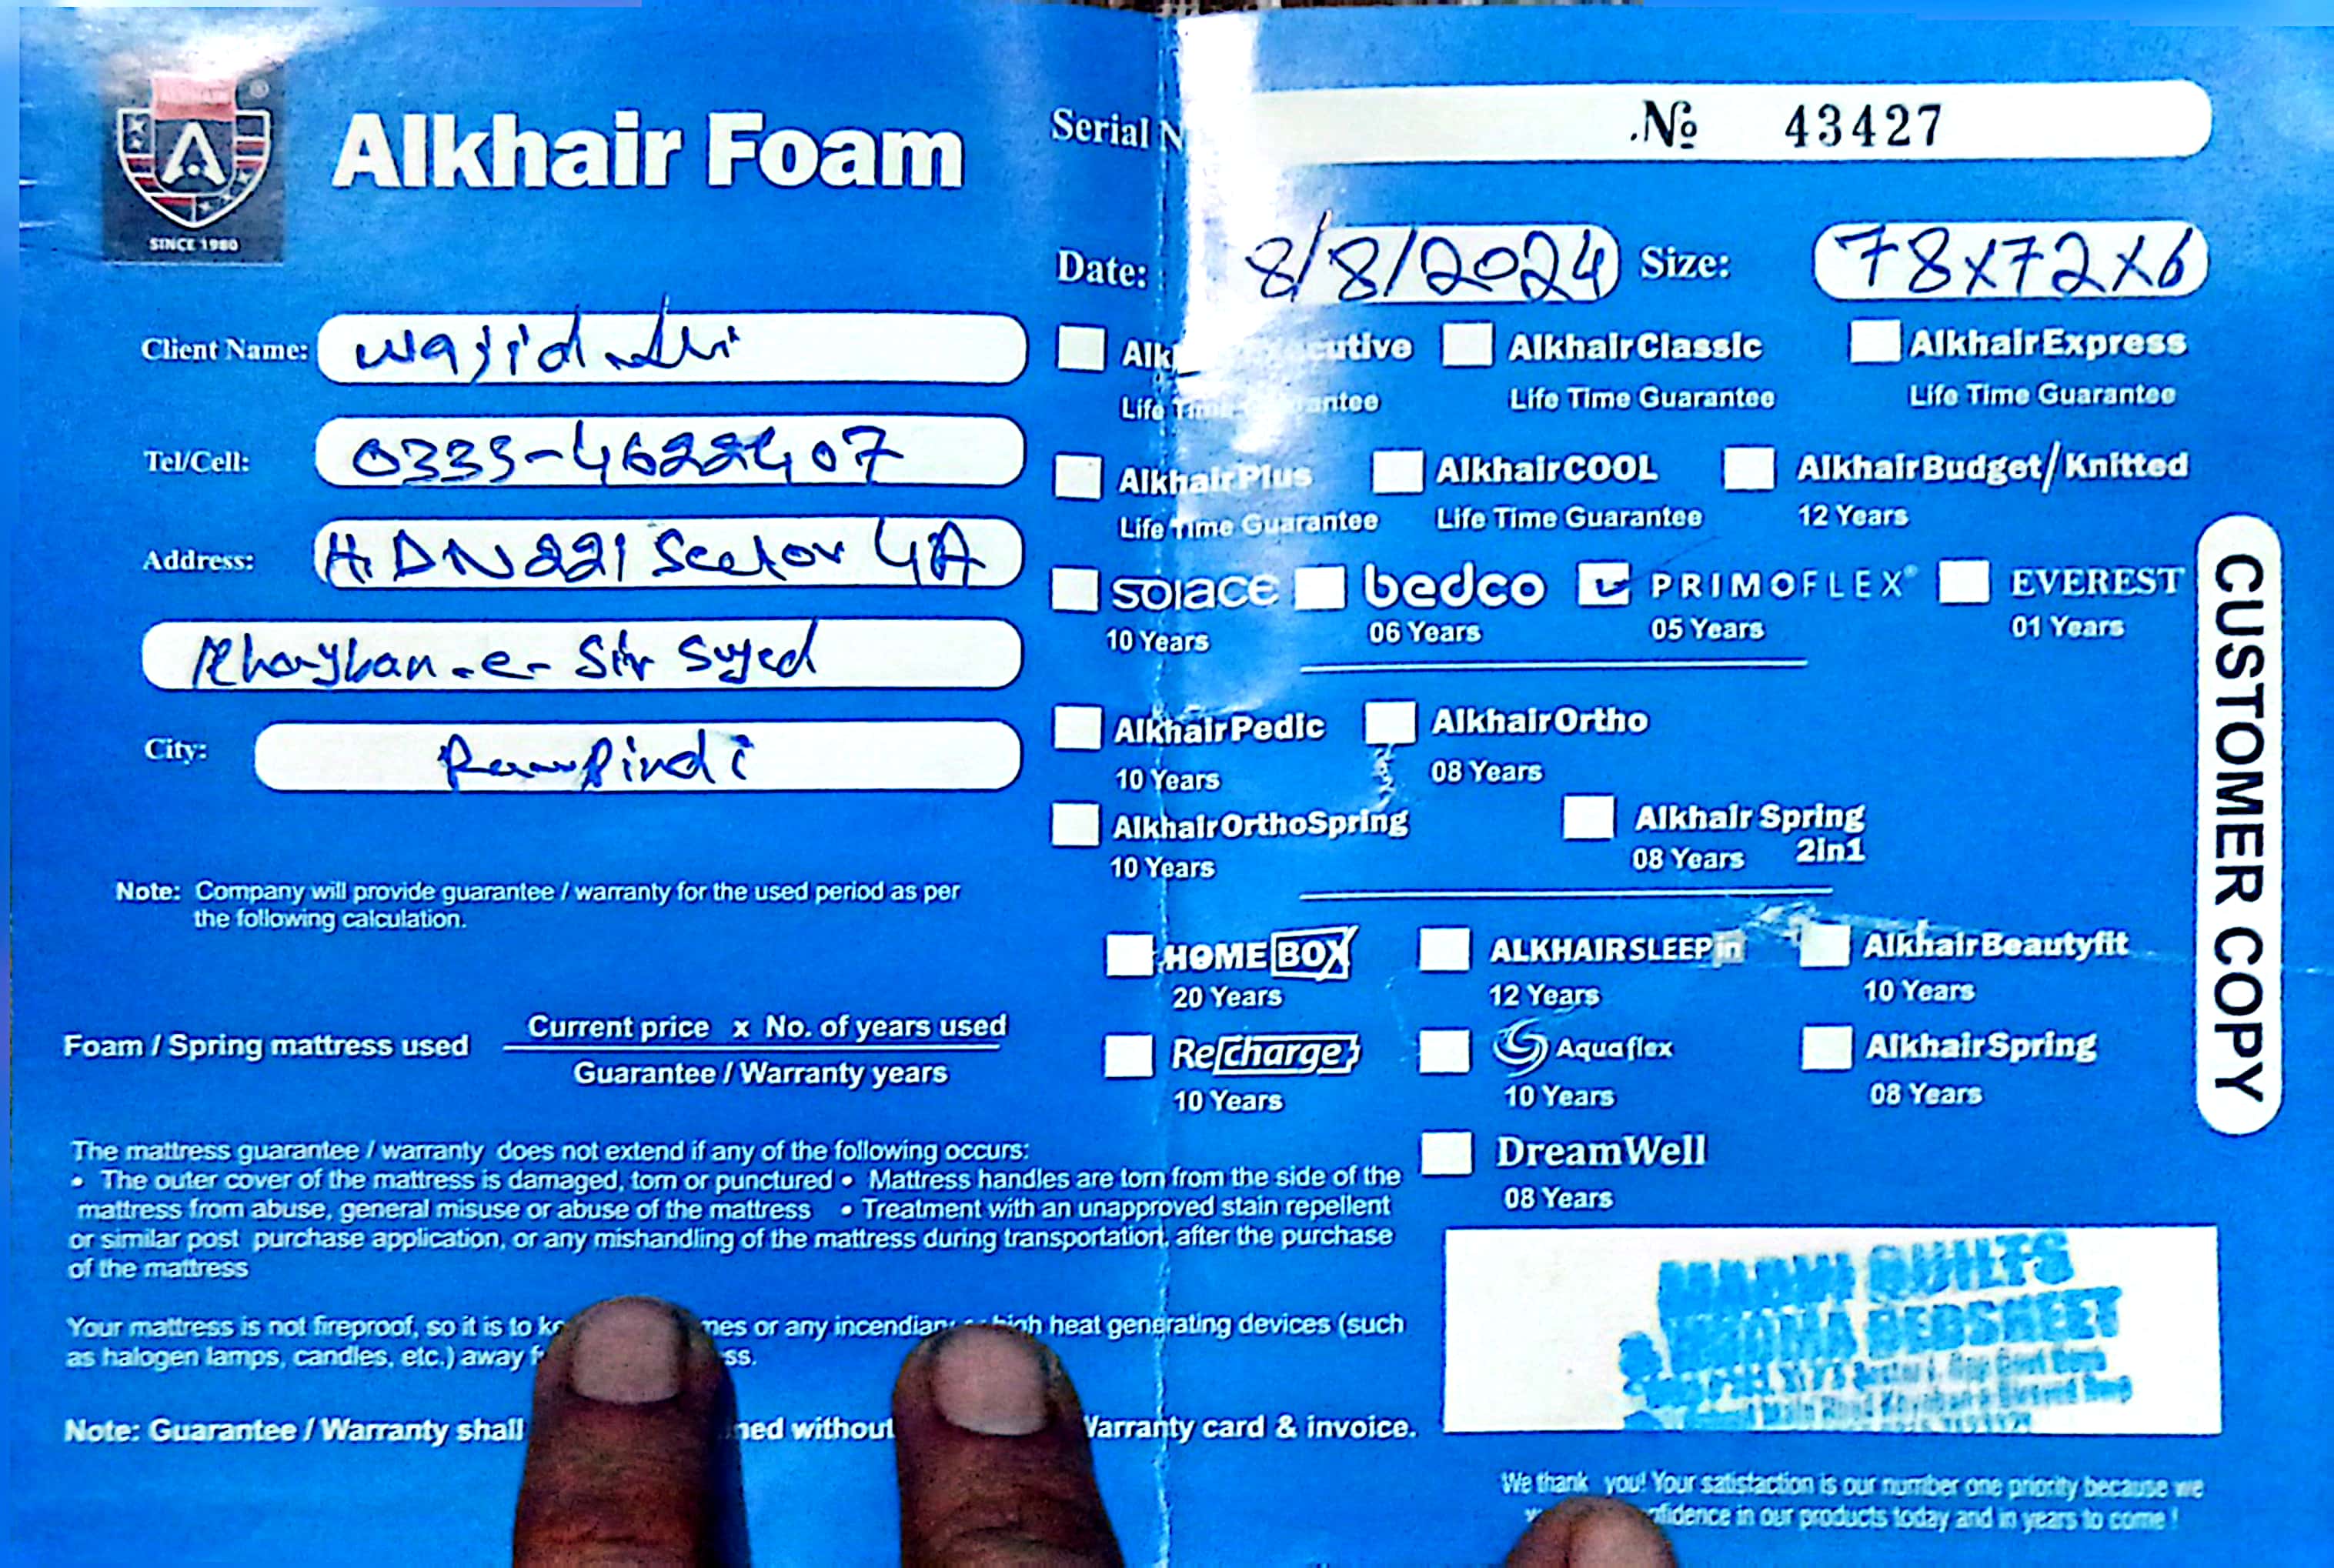 Alkhair Foam
SINCE 1980
Serial N
.№ 43427
Date: 8/8/2024 Size: 78x72x6
Client Name: Wajid Ali
Tel/Cell:
Address: H.DN 221 Sector 4A
Khayban-e-Sir Syed
City:
Alk utive
Life Time Guarantee
AlkhairClassic
Life Time Guarantee
AlkhairExpress
Life Time Guarantee
AlkhairPlus
Life Time Guarantee
AlkhairCOOL
Life Time Guarantee
AlkhairBudget/Knitted
12 Years
SOlACE
10 Years
bedco
06 Years
PRIMOFLEX®
05 Years
EVEREST
01 Years
AlkhairPedic
10 Years
AlkhairOrtho
08 Years
AlkhairOrthoSpring
10 Years
Alkhair Spring
2in1
08 Years
HOME BOX
20 Years
ALKHAIRSLEEP in
12 Years
AlkhairBeautyfit
10 Years
Recharge
10 Years
Aquaflex
10 Years
AlkhairSpring
08 Years
DreamWell
08 Years
CUSTOMER COPY
Note: Company will provide guarantee / warranty for the used period as per
the following calculation.
Foam / Spring mattress used
Current price x No. of years used
Guarantee / Warranty years
The mattress guarantee / warranty does not extend if any of the following occurs:
• The outer cover of the mattress is damaged, torn or punctured • Mattress handles are torn from the side of the
mattress from abuse, general misuse or abuse of the mattress • Treatment with an unapproved stain repellent
or similar post purchase application, or any mishandling of the mattress during transportation, after the purchase
of the mattress
Your mattress is not fireproof, so it is to or any incendiary high heat generating devices (such
as halogen lamps, candles, etc.) away
Note: Guarantee / Warranty shall without Warranty card & invoice.
QUILTS
BEDSHEET
We thank you! Your satisfaction is our number one priority because we
in our products today and in years to come !